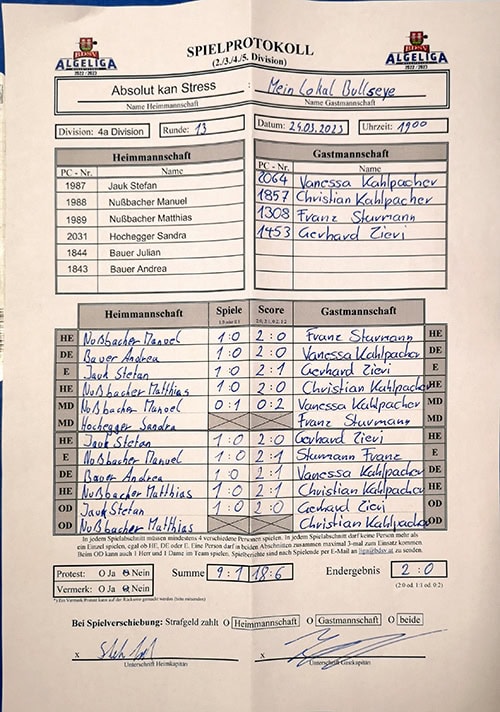 BDSV
ALGELIGA
2022 / 2023
SPIELPROTOKOLL
(2./3./4./5. Division)
BDSV
ALGELIGA
2022 / 2023
Absolut kan Stress : Mein Lokal Bullseye
Name Heimmannschaft Name Gastmannschaft
Division: 4a Division Runde: 13 Datum: 24.03.2023 Uhrzeit: 1900
Heimmannschaft Gastmannschaft
PC - Nr. Name PC - Nr. Name
1987 Jauk Stefan 2064 Vanessa Kahlpacher
1988 Nußbacher Manuel 1857 Christian Kahlpacher
1989 Nußbacher Matthias 1308 Franz Sturmann
2031 Hochegger Sandra 1453 Gerhard Zievi
1844 Bauer Julian
1843 Bauer Andrea
Heimmannschaft Spiele Score Gastmannschaft
2:0, 2:1, 0:2, 1:2
HE Nußbacher Manuel 1:0 2:0 Franz Sturmann HE
DE Bauer Andrea 1:0 2:0 Vanessa Kahlpacher DE
E Jauk Stefan 1:0 2:1 Gerhard Zievi E
HE Nußbacher Matthias 1:0 2:0 Christian Kahlpacher HE
MD Nußbacher Manuel 0:1 0:2 Vanessa Kahlpacher MD
MD Hochegger Sandra Franz Sturmann MD
HE Jauk Stefan 1:0 2:0 Gerhard Zievi HE
E Nußbacher Manuel 1:0 2:1 Sturmann Franz E
DE Bauer Andrea 1:0 2:1 Vanessa Kahlpacher DE
HE Nußbacher Matthias 1:0 2:1 Christian Kahlpacher HE
OD Jauk Stefan 1:0 2:0 Gerhard Zievi OD
OD Nußbacher Matthias Christian Kahlpacher OD
In jedem Spielabschnitt müssen mindestens 4 verschiedene Personen spielen. In jedem Spielabschnitt darf keine Person mehr als
ein Einzel spielen, egal ob HE, DE oder E. Eine Person darf in beiden Abschnitten zusammen maximal 3-mal zum Einsatz kommen.
Beim OD kann auch 1 Herr und 1 Dame im Team spielen. Spielberichte sind nach Spielende per E-Mail an liga@bdsv.at zu senden.
Protest: O Ja O Nein Summe 9:1 18:6 Endergebnis 2:0
Vermerk: O Ja O Nein (2:0 od. 1:1 od. 0:2)
Bei Spielverschiebung: Strafgeld zahlt O Heimmannschaft O Gastmannschaft O beide
x x
Unterschrift Heimkapitän Unterschrift Gastkapitän